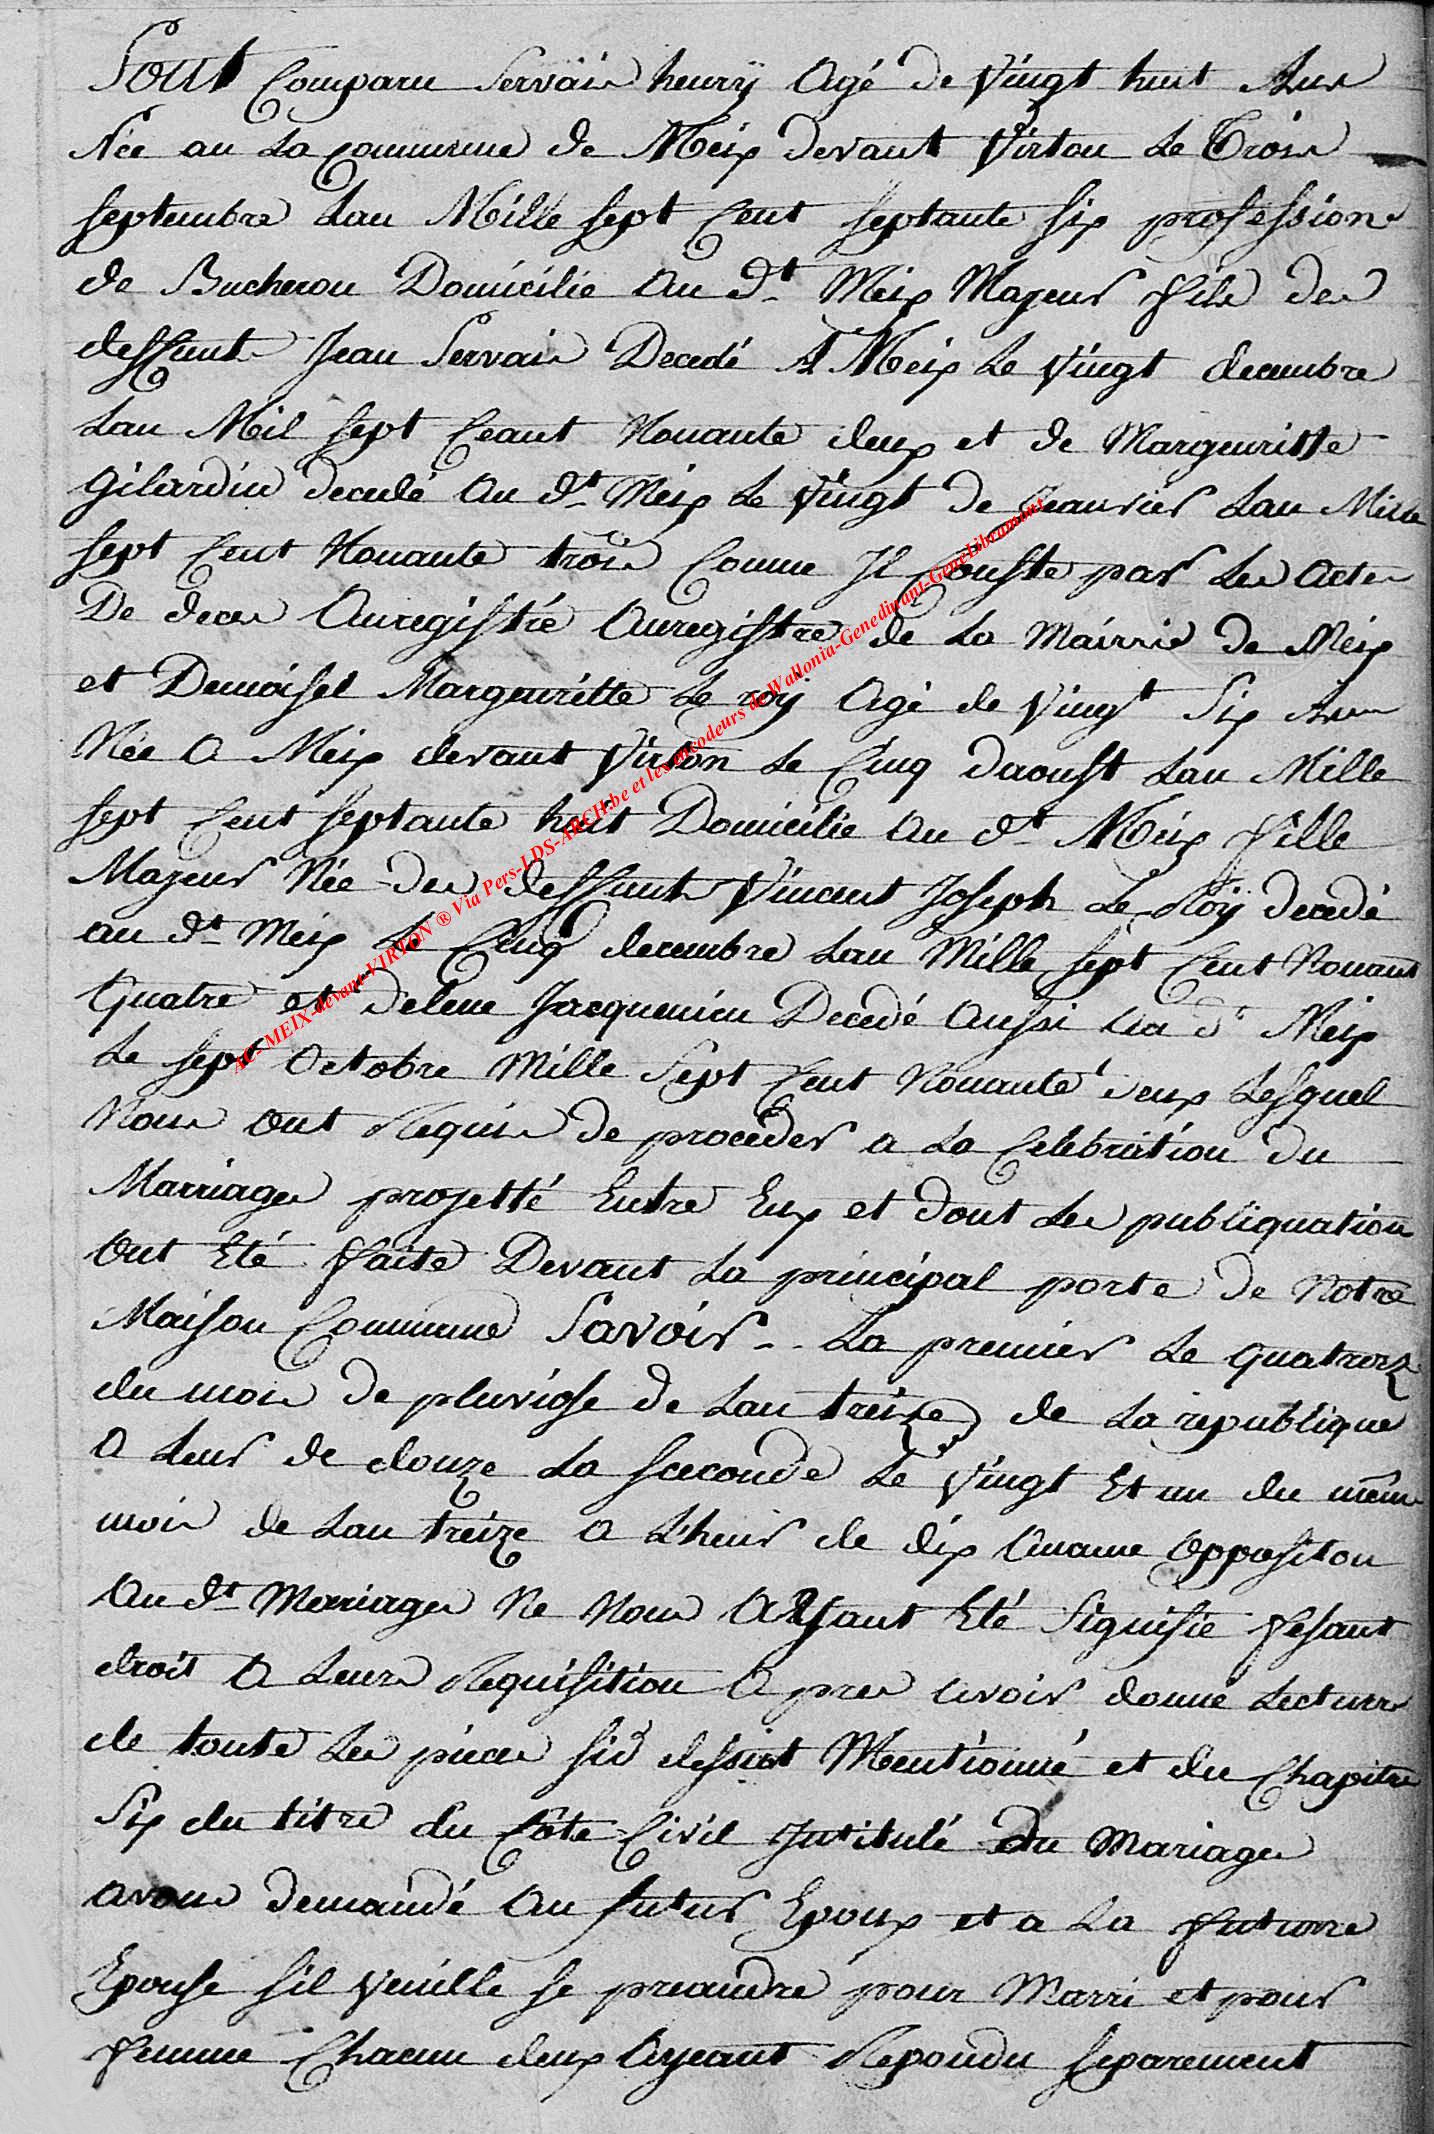 Sont Comparu Servais henrÿ Agé de Vingt huit Ans
Née au La Commune de Meix devant Virton Le Trois
septembre Lan Mille sept Cent septante six profession
de Bucheron Domicilié Au dt Meix Majeur fils des
deffunts Jean Servais Decedé A Meix Le Vingt decembre
Lan Mil sept Ceant Nonante deux et de Margueritte
Gilardin decedé Au dt Meix Le Vingt de Jeanvier Lan Mille
sept Cent Nonante trois Comme Jl Conste par Les Actes
De deces Auregistré Auregistre de La Mairrie de Meix
et Demoisel Margeuritte Le roÿ Agé de Vingt Six Ans
Née A Meix devant Virton Le Cinq daoust Lan Mille
sept Cent septante huit Domicilié Au dt Meix fille
Majeur Née des deffunts Vincent Joseph Le Roÿ decedé
au dt Meix Le Cinq decembre Lan Mille sept Cent Nonant
Quatre et delene Jacquemin Decedé Aussi Au dt Meix
Le sept Octobre Mille Sept Cent Nonante deux Lesquel
Nous Ont Requis de proceder a La Celebration du
Marriages projetté Entre Eux et dont Les publiquation
Ont Eté faite Devant La principal porte de Notre
Maison Commune Savoir La premier Le quatorz
du mois de pluviose de Lan treize de La republique
A Leur de douze La seconde Le Vingt Et un du mème
mois de Lan treize A L'heur de dix Aucune Oppositon
Au dt Mariages Ne Nous Ayant Eté Signifié fesant
droit A Leurs Requisition Apres avoir donne Lecture
de toute Les pieces sid dessiot Mentionné et du Chapitre
Six du titre du Côte Civil Jntitulé du Mariages
avons demandé Au futur Epoux et a La future
Epouse sil Veuille se preandre pour Marri et pour
femme Chacun deux Ayeant Repondu separement
AC-MEIX-devant-VIRTON ® Via Pers-LDS-ARCH.be et les encodeurs de Wallonia-Genedinant-GeneLibramont